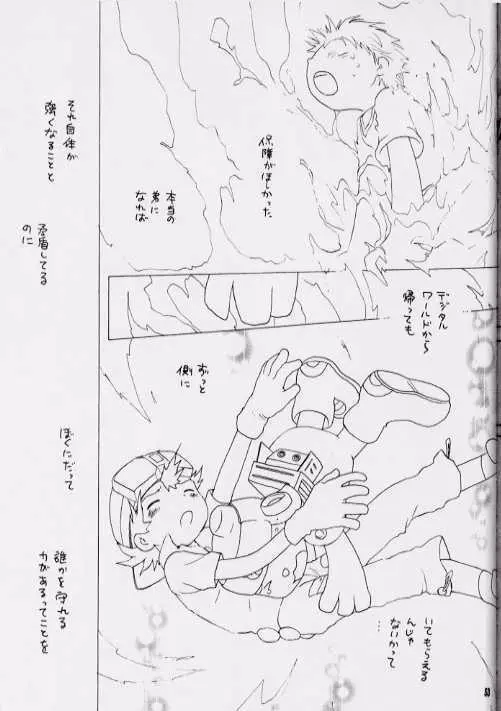 保障がほしかった
本当の
弟に
なれば
デジタル
ワールドから
帰っても
ずっと
側に
いてもらえる
んじゃ
ないかって
…
それ自体が
強くなることと
矛盾してる
のに
ぼくにだって
誰かを守れる
力があるってことを